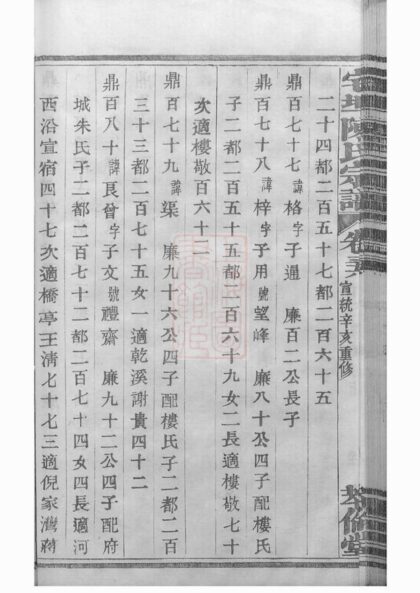 宅埠陳氏宗譜
宣統辛亥重修
二十四都二百五十七都二百六十五
鼎百七十七諱格字子通　廉百二公長子
鼎百七十八諱梓字子用號望峰　廉八十公四子配樓氏
子二都二百五十五都二百六十九女二長適樓敬七十
次適樓敬百六十二
鼎百七十九諱渠　廉九十六公四子配樓氏子二都二百
三十三都二百七十五女一適乾溪謝貴四十二
鼎百八十諱良曾字子文號禮齋　廉九十二公四子配府
城朱氏子二都二百七十二都二百七十四女四長適河
西沿宣宿四十七次適橋亭王淸七十七三適倪家